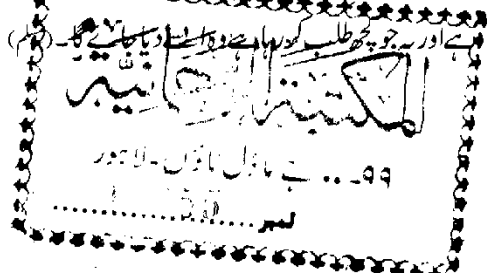 ہے اور یہ جو کچھ طلب کر رہا ہے وہ اسے دیا جائے گا۔ (مسلم)
المکتبۃ الرحمانیۃ
۹۹... جے ماڈل ٹاؤن۔ لاہور
نمبر..................